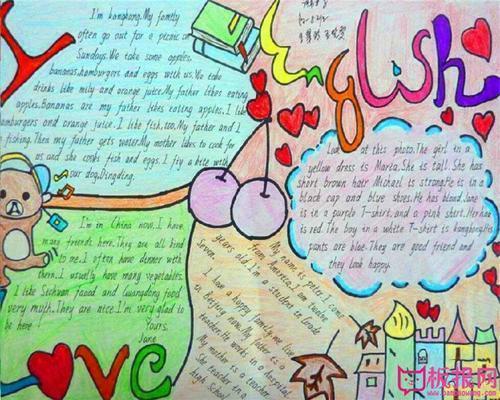 I
I'm kangkang.My family
often go out for a picnic on
Sundays.We take some apples,
bananas,hamburgers and eggs with us.We take
drinks like milk and orange juice.My father likes eating
apples.Bananas are my father likes eating apples.I like
hamburgers and orange juice.I like fish,too.My father and I
fishing.Then my father gets water.My mother likes to cook for
us and she cooks fish and eggs.I fly a kite with
our dog,Dingding.
English
Look at this photo.The girl in a
yellow dress is Maria.She is tall.She has
short brown hair Michael is strong.He is in a
black cap and blue shoes.He has blond.Jane
is in a purple T-shirt.and a pink short.Her hair
is red.The boy in a white T-shirt is kangkang.His
pants are blue.They are good friend and
they look happy.
I'm in China now.I have
many friends here.They are all kind
to me.I often have dinner with
them.I usually have many vegetables.
I like Sichuan faood and Guangdong food
very myth.They are nice.I'm very glad to
be here!
Yours,
Jane
My name is peter.I come
from America.I am twelve
years old.I'm a student in Grade
Seven.
I have a happy family.We live
in Beijing now.My father is a
He works in a hospital.
My mother is a teacher.
She teacher in a
High School
Love
板报网
www.banbaowang.com